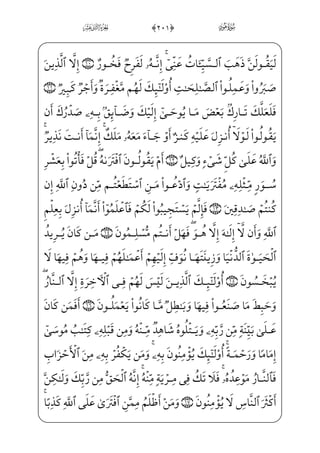 سُورَةُ هُودٍ
﴿٢٠١﴾
لَيَقُولَنَّ ذَهَبَ ٱلسَّيِّـَٔاتُ عَنِّىٓ ۚ إِنَّهُۥ لَفَرِحٌ فَخُورٌ ۝١٠ إِلَّا ٱلَّذِينَ
صَبَرُوا۟ وَعَمِلُوا۟ ٱلصَّـٰلِحَـٰتِ أُو۟لَـٰٓئِكَ لَهُم مَّغْفِرَةٌ وَأَجْرٌ كَبِيرٌ ۝١١
فَلَعَلَّكَ تَارِكٌۢ بَعْضَ مَا يُوحَىٰٓ إِلَيْكَ وَضَآئِقٌۢ بِهِۦ صَدْرُكَ أَن
يَقُولُوا۟ لَوْلَآ أُنزِلَ عَلَيْهِ كَنزٌ أَوْ جَآءَ مَعَهُۥ مَلَكٌ ۚ إِنَّمَآ أَنتَ نَذِيرٌ ۚ
وَٱللَّهُ عَلَىٰ كُلِّ شَىْءٍ وَكِيلٌ ۝١٢ أَمْ يَقُولُونَ ٱفْتَرَىٰهُ ۖ قُلْ فَأْتُوا۟ بِعَشْرِ
سُوَرٍ مِّثْلِهِۦ مُفْتَرَيَـٰتٍ وَٱدْعُوا۟ مَنِ ٱسْتَطَعْتُم مِّن دُونِ ٱللَّهِ إِن
كُنتُمْ صَـٰدِقِينَ ۝١٣ فَإِلَّمْ يَسْتَجِيبُوا۟ لَكُمْ فَٱعْلَمُوٓا۟ أَنَّمَآ أُنزِلَ بِعِلْمِ
ٱللَّهِ وَأَن لَّآ إِلَـٰهَ إِلَّا هُوَ ۖ فَهَلْ أَنتُم مُّسْلِمُونَ ۝١٤ مَن كَانَ يُرِيدُ
ٱلْحَيَوٰةَ ٱلدُّنْيَا وَزِينَتَهَا نُوَفِّ إِلَيْهِمْ أَعْمَـٰلَهُمْ فِيهَا وَهُمْ فِيهَا لَا
يُبْخَسُونَ ۝١٥ أُو۟لَـٰٓئِكَ ٱلَّذِينَ لَيْسَ لَهُمْ فِى ٱلْـَٔاخِرَةِ إِلَّا ٱلنَّارُ ۖ
وَحَبِطَ مَا صَنَعُوا۟ فِيهَا وَبَـٰطِلٌ مَّا كَانُوا۟ يَعْمَلُونَ ۝١٦ أَفَمَن كَانَ
عَلَىٰ بَيِّنَةٍ مِّن رَّبِّهِۦ وَيَتْلُوهُ شَاهِدٌ مِّنْهُ وَمِن قَبْلِهِۦ كِتَـٰبُ مُوسَىٰٓ
إِمَامًا وَرَحْمَةً ۚ أُو۟لَـٰٓئِكَ يُؤْمِنُونَ بِهِۦ ۚ وَمَن يَكْفُرْ بِهِۦ مِنَ ٱلْأَحْزَابِ
فَٱلنَّارُ مَوْعِدُهُۥ ۚ فَلَا تَكُ فِى مِرْيَةٍ مِّنْهُ ۚ إِنَّهُ ٱلْحَقُّ مِن رَّبِّكَ وَلَـٰكِنَّ
أَكْثَرَ ٱلنَّاسِ لَا يُؤْمِنُونَ ۝١٧ وَمَنْ أَظْلَمُ مِمَّنِ ٱفْتَرَىٰ عَلَى ٱللَّهِ كَذِبًا ۚ